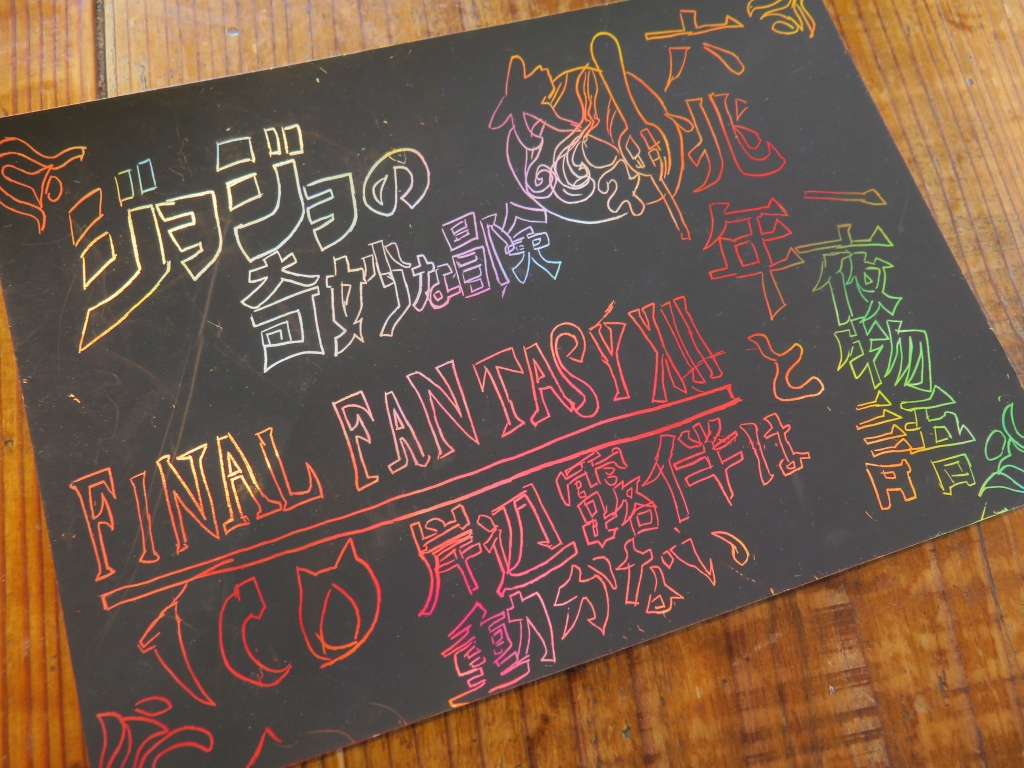 ジョジョの
奇妙な冒険
六兆年と
一夜物語
FINAL FANTASY XII
ICO
岸辺露伴は
動かない